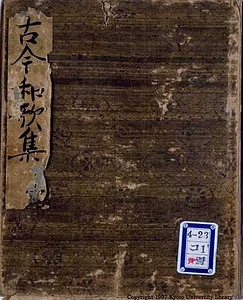 古今和歌集
4-23
コ1
Copyright 1997 Kyoto University Library